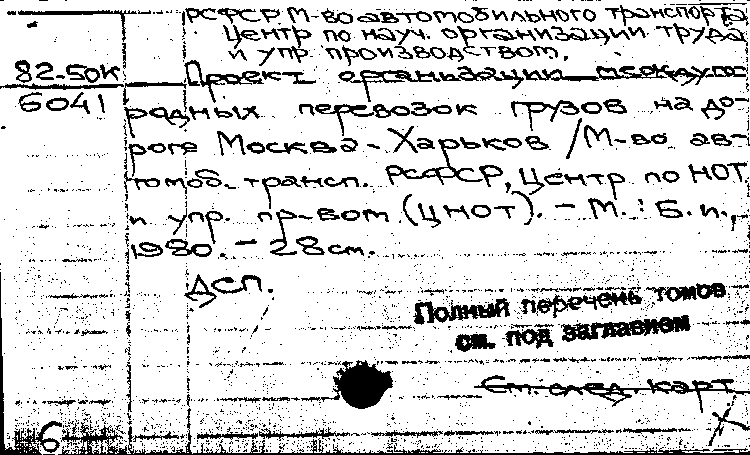 РСФСР М-во автомобильного транспорта
Центр по науч. организации труда
и упр. производством.
82-50к Проект организации междуго-
6041 родных перевозок грузов на до-
роге Москва - Харьков / М-во ав-
томоб. трансп. РСФСР, Центр по НОТ
и упр. пр-вом (ЦНОТ). - М. : Б. и.,
1980. - 28 см.
ДСП.
Полный перечень томов
см. под заглавием
См. след. карт
6